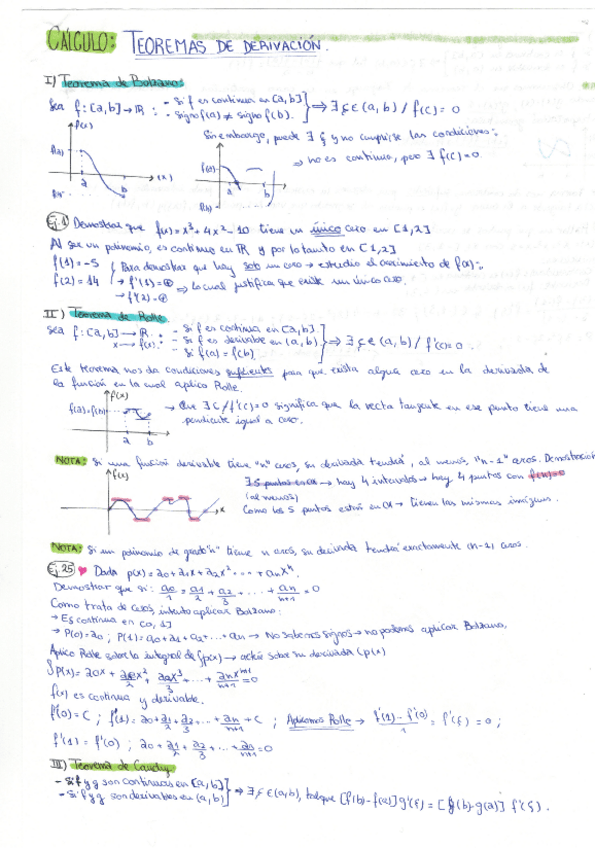 CÁLCULO: TEOREMAS DE DERIVACIÓN.
I) Teorema de Bolzano:
Sea f: [a,b] → ℝ : - Si f es continua en [a,b] - Signo f(a) ≠ signo f(b). ⇒ ∃ ξ ∈ (a,b) / f(c) = 0
Sin embargo, puede ∃ ξ y no cumplirse las condiciones:
f(x)
f(a)
a
b
(x)
f(b)
⇒ no es continua, pero ∃ f(c)=0
Ej.1 Demostrar que f(x)= x³+4x²-10 tiene un único cero en [1,2]
Al ser un polinomio, es continuo en ℝ y por lo tanto en [1,2]
f(1) = -5
f(2) = 14
Para demostrar que hay solo un cero → estudio el crecimiento de f(x):
→ f'(1) = ⊕
→ f'(2) = ⊕
⇒ Lo cual justifica que existe un único cero.
II) Teorema de Rolle
Sea f: [a,b] → ℝ : - Si f es continua en [a,b].
x → f(x) : - Si f es derivable en (a,b)
- Si f(a) = f(b)
⇒ ∃ ξ ∈ (a,b) / f'(c)= 0
Este teorema nos da condiciones suficientes para que exista algún cero en la derivada de
la función en la cual aplico Rolle.
f(x)
f(a)=f(b)
a b
→ Que ∃ c / f'(c)=0 significa que la recta tangente en ese punto tiene una
pendiente igual a cero.
NOTA: Si una función derivable tiene "n" ceros, su derivada tendrá, al menos, "n-1" ceros. Demostración
f(x)
x
→ hay 4 intervalos → hay 4 puntos con
(al menos)
Como los 5 puntos están en OX → tienen las mismas imágenes.
NOTA: Si un polinomio de grado "n" tiene n ceros, su derivada tendrá exactamente (n-1) ceros.
Ej.25 ♥ Dada p(x) = a0+a1x+a2x²+ ... + anxⁿ.
Demostrar que si: a0/1 + a1/2 + a2/3 + ... + an/n+1 = 0
Como trata de ceros, intento aplicar Bolzano.
→ Es continua en [0,1]
→ P(0)=a0 ; P(1) = a0+a1+a2+...+an → No sabemos signos → no podemos aplicar Bolzano.
Aplico Rolle sobre la integral de ∫p(x) → actúe sobre su derivada (p(x)
f(x) es continua y derivable.
Aplicamos Rolle → f(1) - f(0) / 1 = f'(ξ) = 0 ;
III) Teorema de Cauchy
- Si f y g son continuas en [a,b]
- Si f y g son derivables en (a,b)
⇒ ∃ ξ ∈ (a,b), tal que [f(b)-f(a)] g'(ξ) = [g(b)-g(a)] f'(ξ).